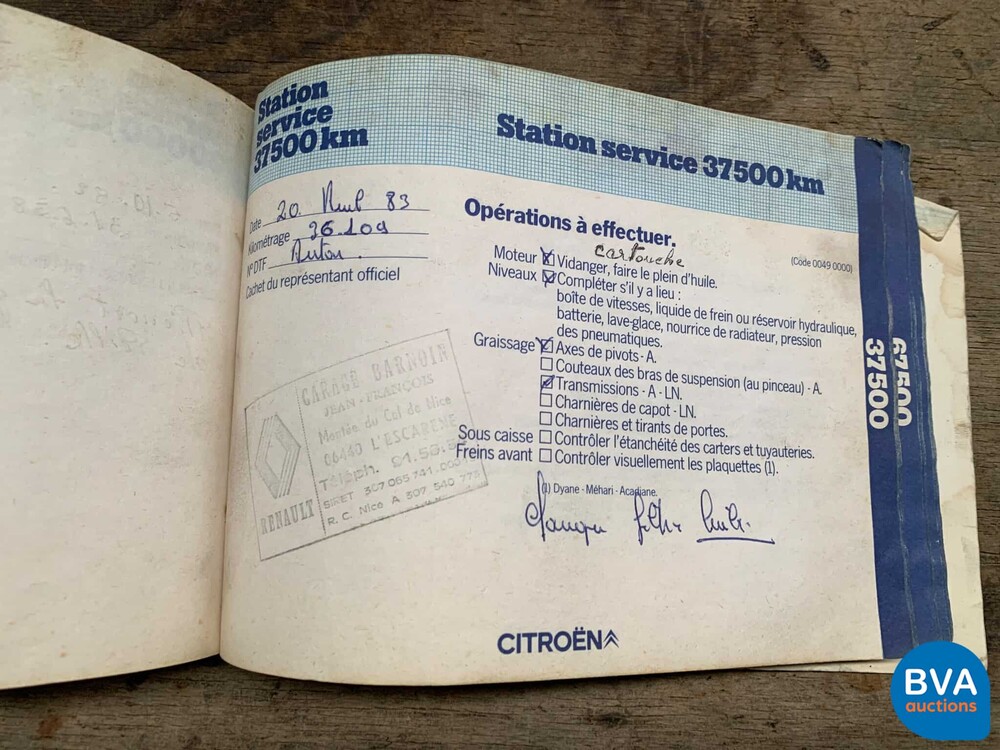 Station
service
37500 km
Date 20. 83
Kilométrage 36.109
N° DTF
Cachet du représentant officiel
GARAGE BARNOIN
JEAN-FRANÇOIS
Montée du Col de Nice
06440 L'ESCARENE
Téléph. 91.55.5
SIRET 307 065 741.000
R.C. Nice A 307 540 775
RENAULT
Station service 37500 km
Opérations à effectuer.
cartouche
(Code 0049 0000)
Moteur Vidanger, faire le plein d'huile.
Niveaux Compléter s'il y a lieu :
boîte de vitesses, liquide de frein ou réservoir hydraulique,
batterie, lave-glace, nourrice de radiateur, pression
des pneumatiques.
Graissage Axes de pivots · A.
Couteaux des bras de suspension (au pinceau) · A.
Transmissions · A · LN.
Charnières de capot · LN.
Charnières et tirants de portes.
Sous caisse Contrôler l'étanchéité des carters et tuyauteries.
Freins avant Contrôler visuellement les plaquettes (1).
(1) Dyane · Méhari · Acadiane.
CITROËN
37500
67500
BVA
auctions